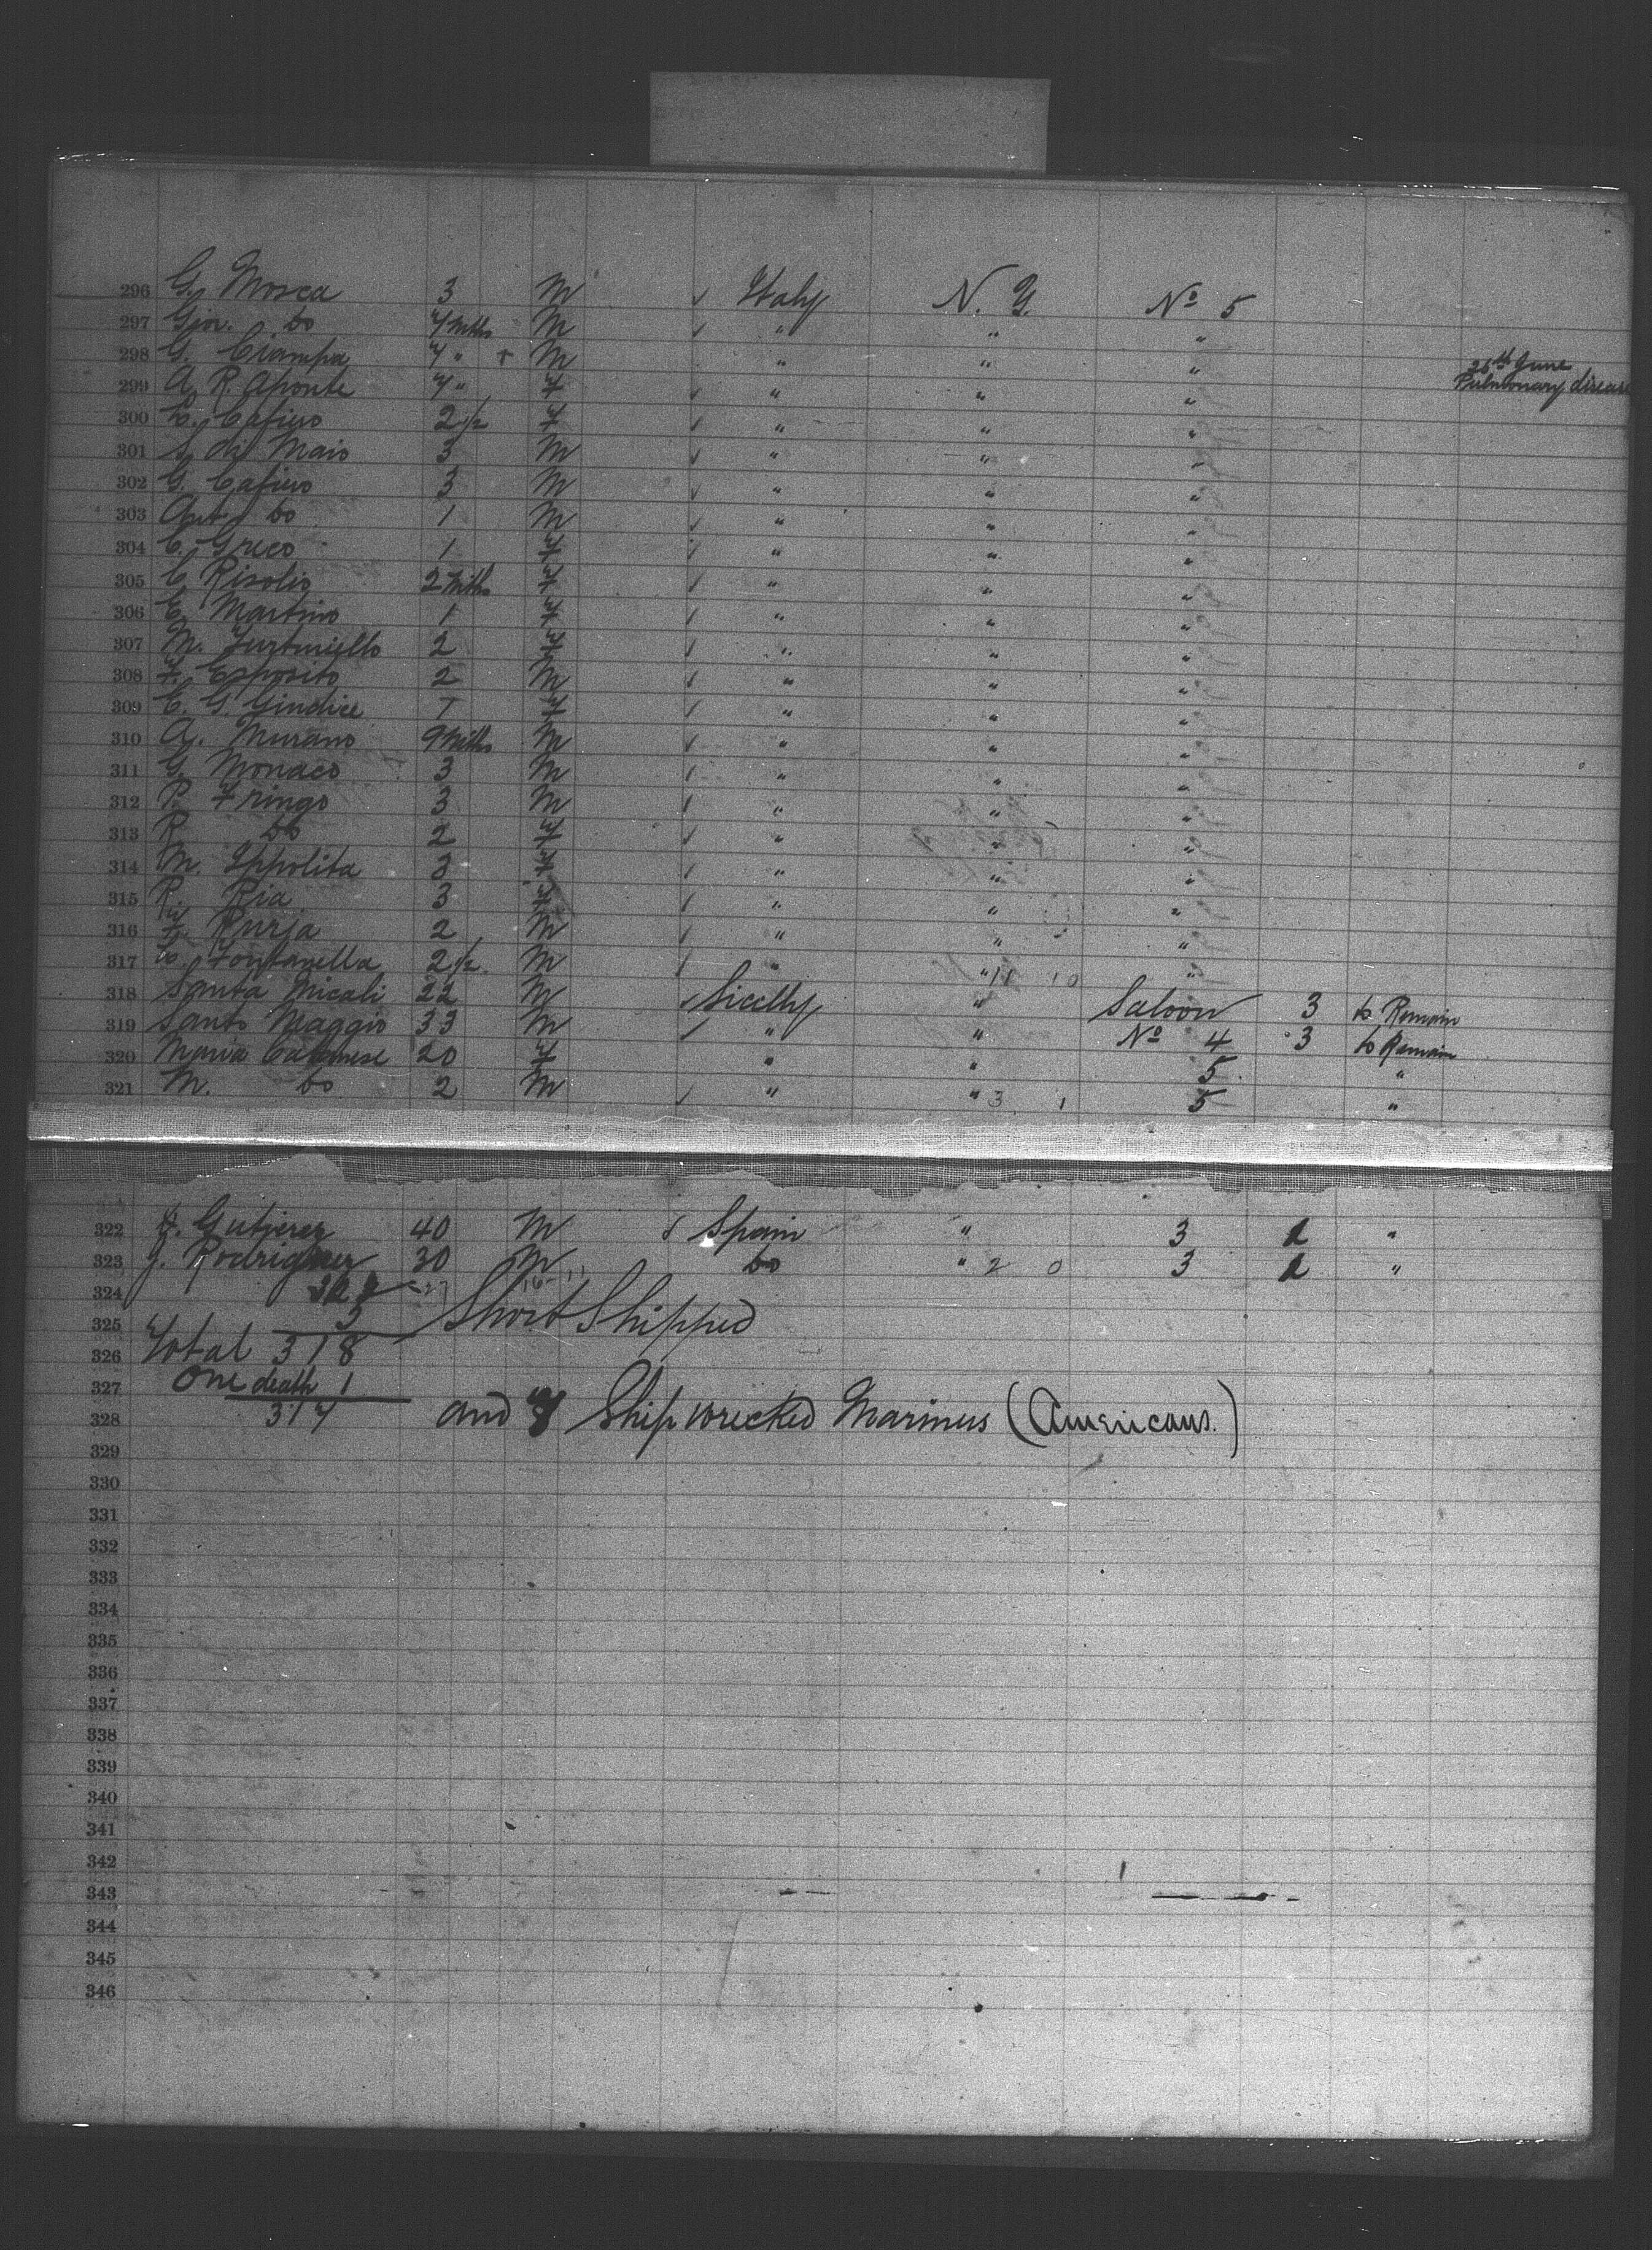 296 G. Mosca 3 M ✓ Italy N. Y. No 5
297 Gior. do 7 Mths M ✓ " " "
298 G. Ciampa 7 " + M " " " 26th June
299 A. R. Aponte 7 " F ✓ " " " Pulmonary disease
300 C. Cafiero 2 1/2 F ✓ " " "
301 S. di Maio 3 M ✓ " " "
302 G. Cafiero 3 M ✓ " " "
303 Ant. do 1 M ✓ " " "
304 C. Greco 1 F ✓ " " "
305 C. Risolio 2 Mths F ✓ " " "
306 C. Martino 1 F ✓ " " "
307 M. 2 F ✓ " " "
308 F. Esposito 2 M ✓ " " "
309 C. G. Giudice F ✓ " " "
310 A. Murano 9 Mths M ✓ " " "
311 G. Monaco 3 M ✓ " " "
312 P. Fringo 3 M ✓ " " "
313 R. do 2 F ✓ " " "
314 M. Ippolita 3 F ✓ " " "
315 R. Ria 3 F ✓ " " "
316 F. 2 M ✓ " " "
317 C. Fontanella 2 1/2 M ✓ " " 11 10 "
318 Santa Micali 22 M ✓ Sicclly " Saloon 3 to Remain
319 Santo Maggio 33 M ✓ " " No 4 3 to Remain
320 Maria Calabrese 20 F " " 5 "
321 M. do 2 M ✓ " " 3 1 5 "
322 F. Gutierez 40 M ✓ Spain " 3 "
323 J. Rodriguez 30 M do " 2 0 3 "
324 16 - 11
325 5 Short Shipped
326 Total 318
327 One death 1
328 317 and 8 Ship wrecked Mariners (Americans.)
329
330
331
332
333
334
335
336
337
338
339
340
341
342
343
344
345
346